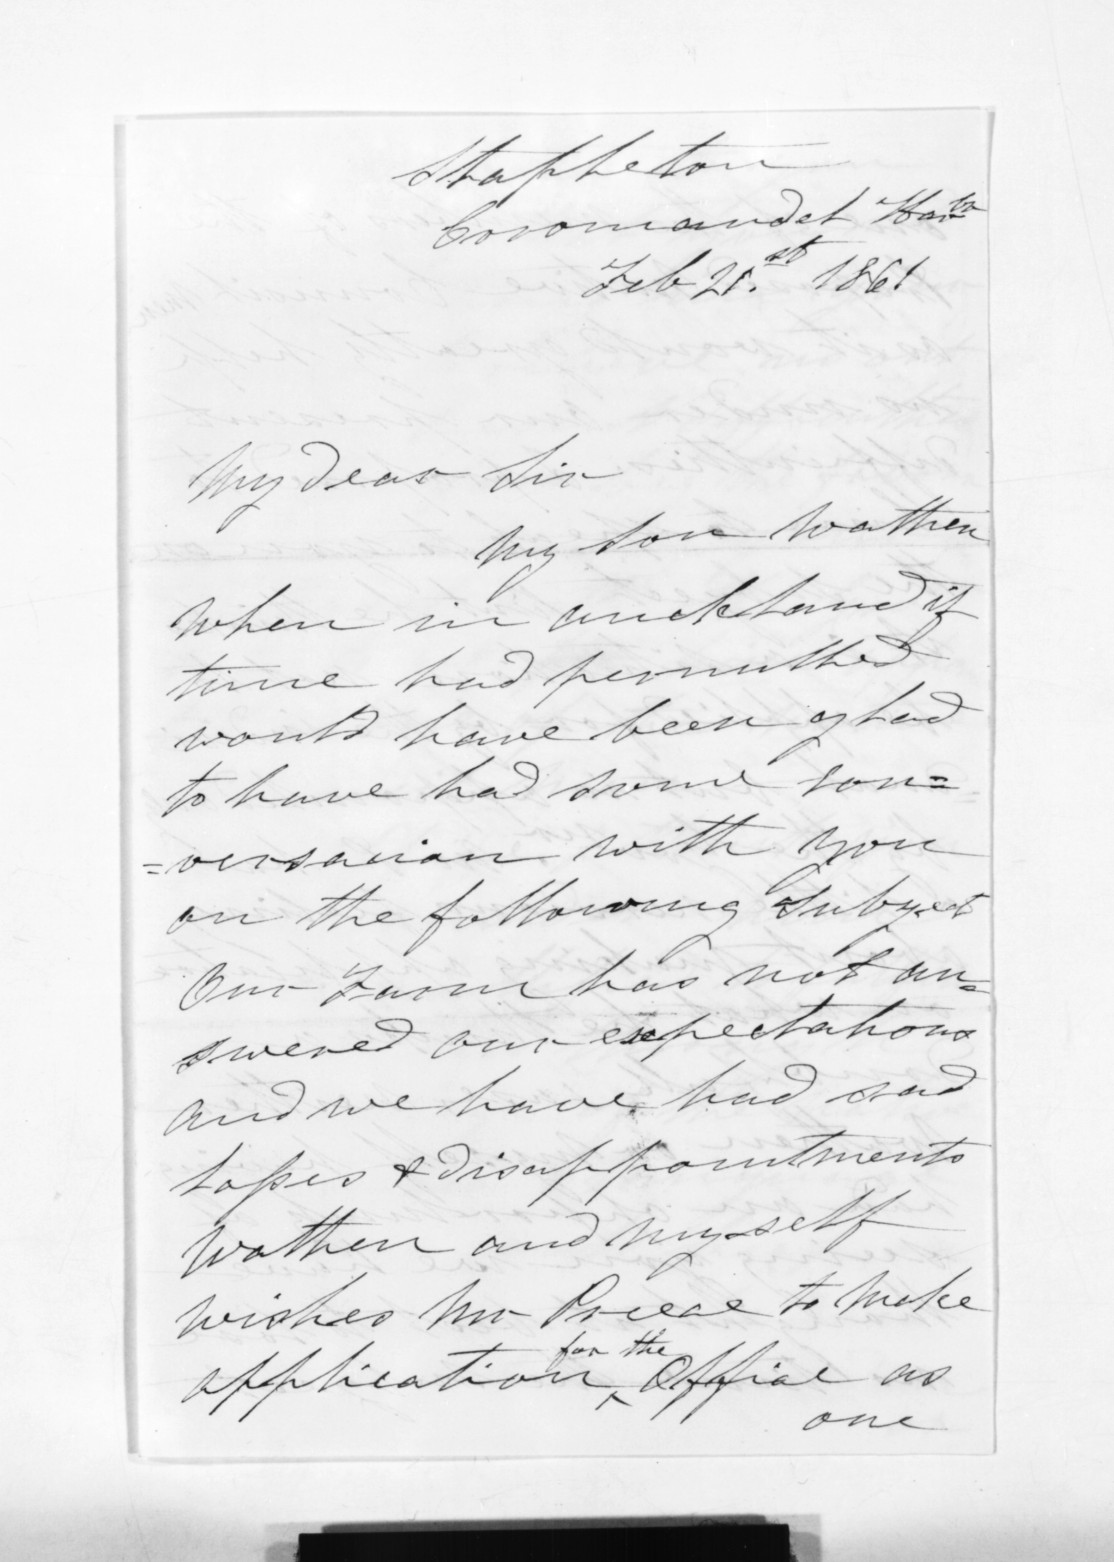 Stapleton
Coromandel Harbr
Feb 21.st 1861
My dear Sir
My son Wathen
when in auckland if
time had permitted
would have been glad
to have had some con=
=versacion with you
on the following Subject
Our Farm has not an=
swered our expectations
and we have had sad
losses & disappointments
Wathen and myself
wishes Mr Preece to make
application for the Office as
one